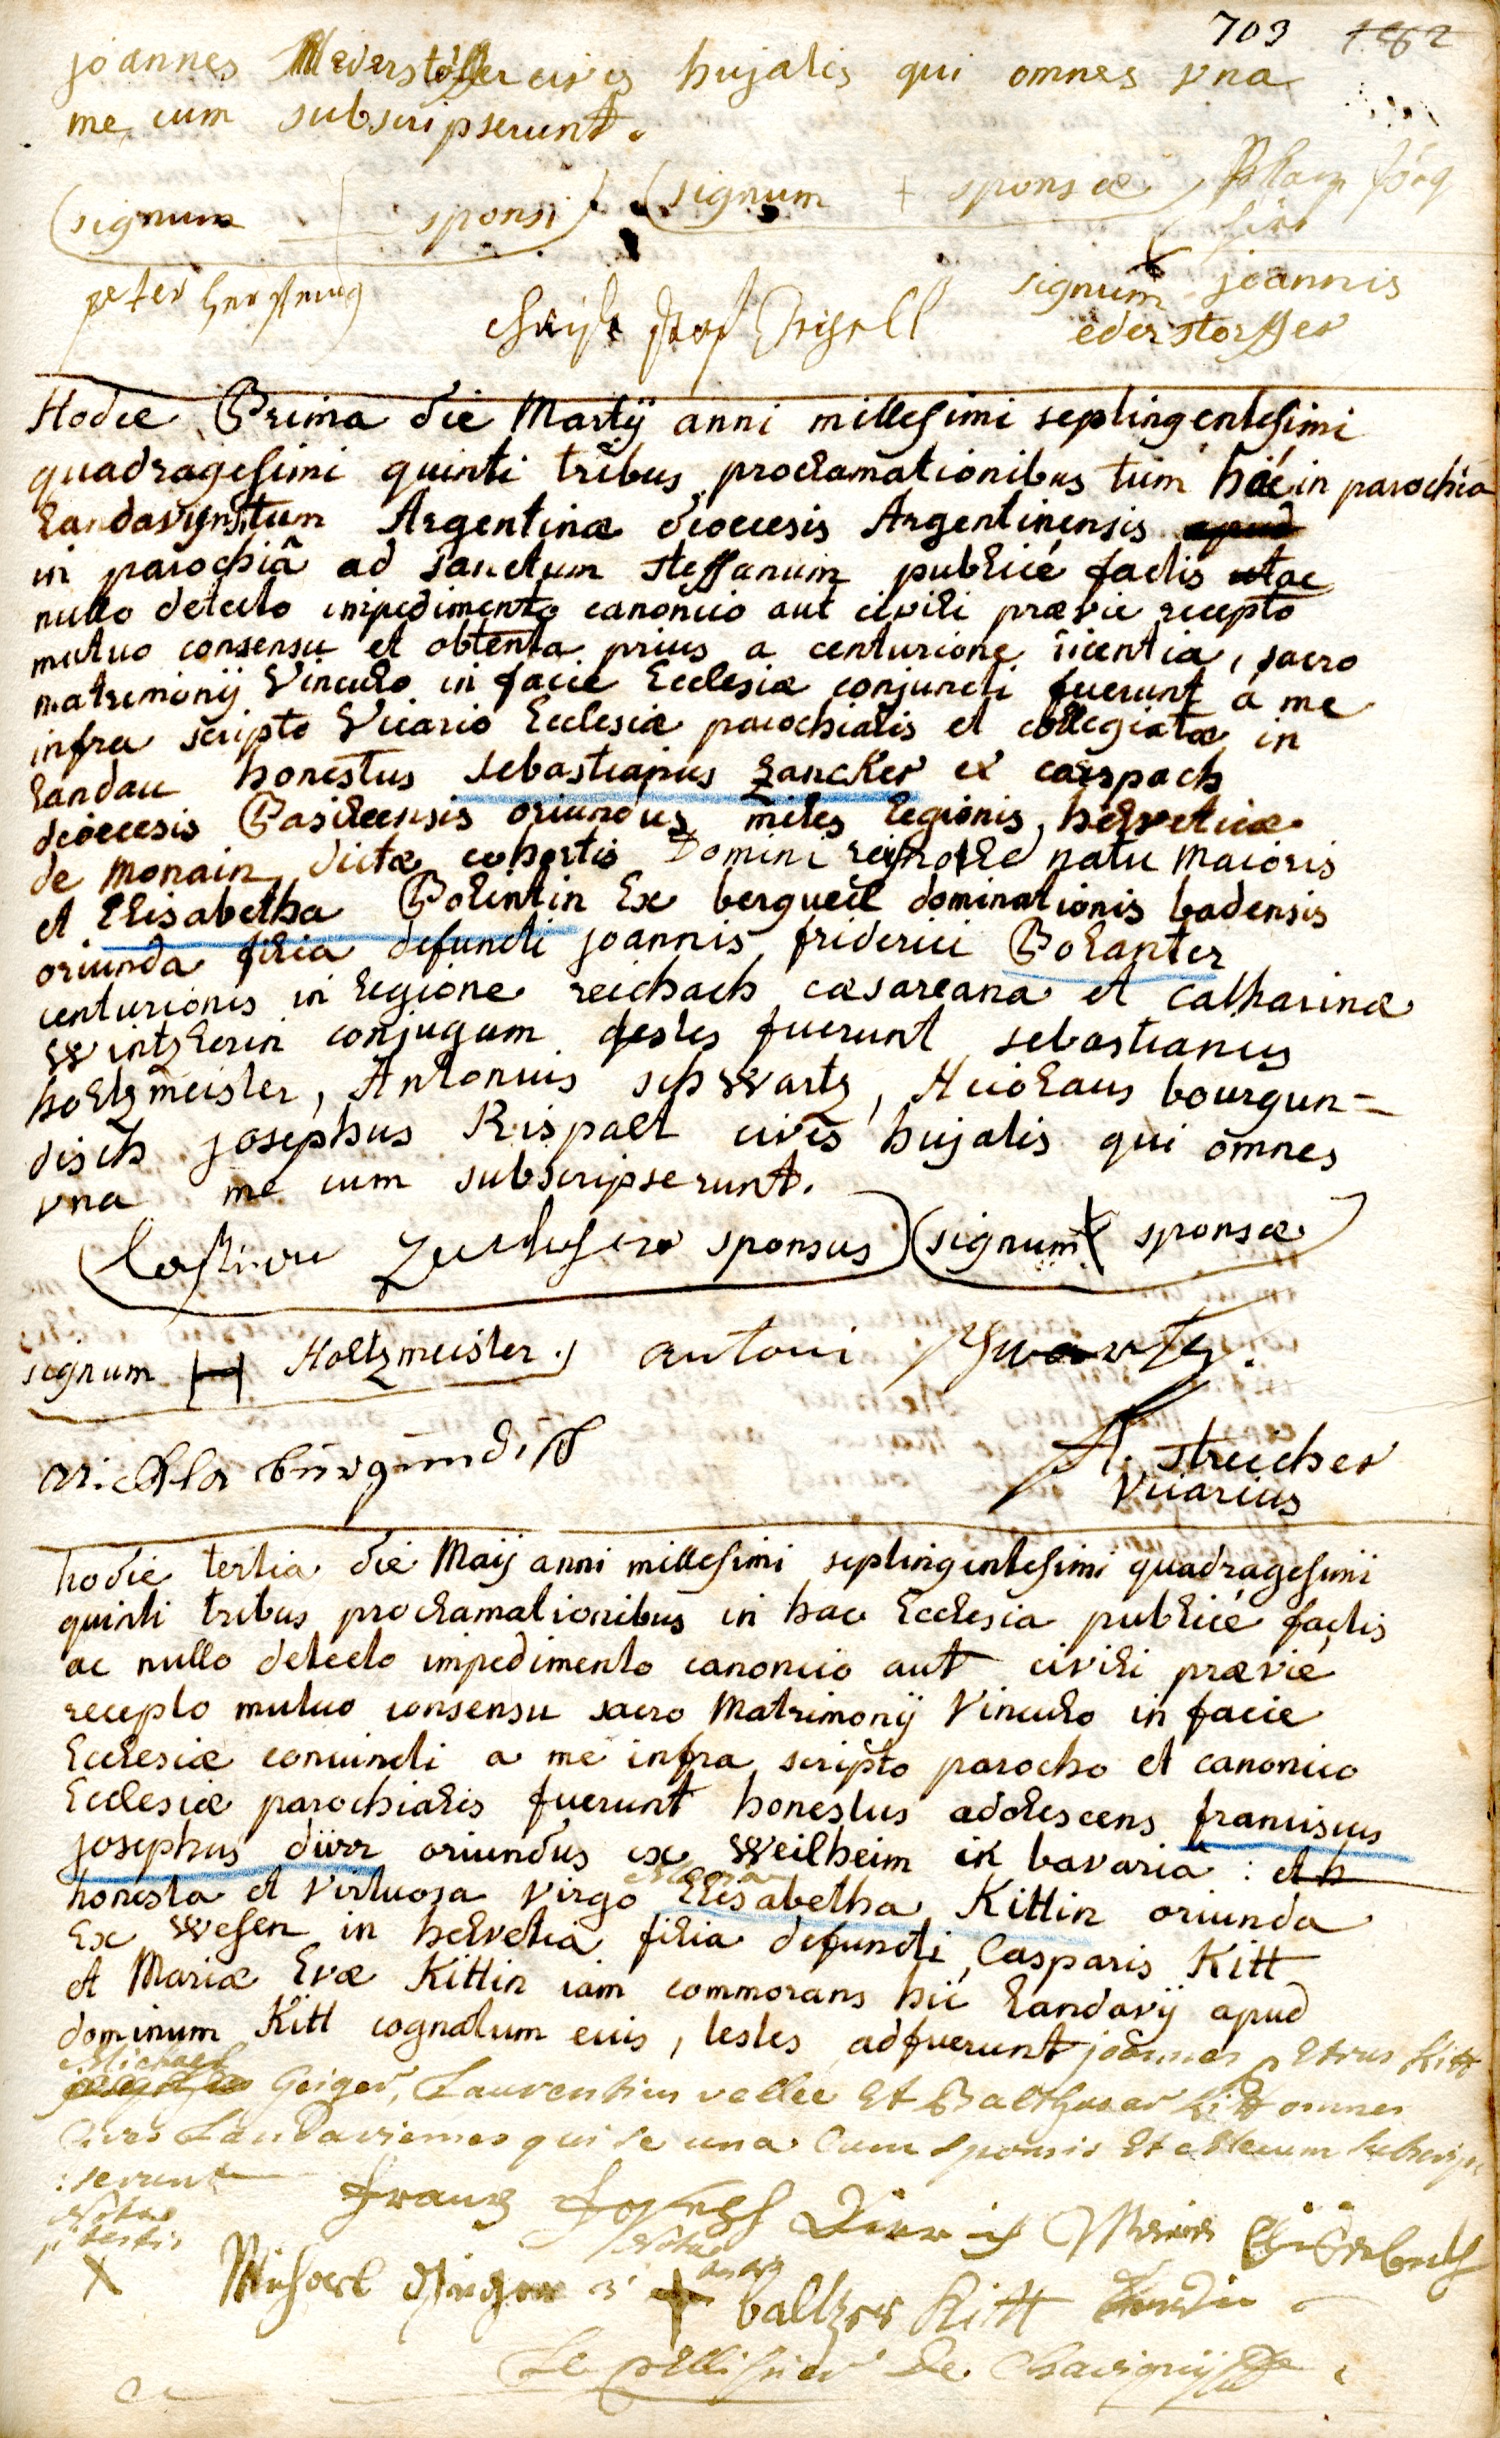 703 182
joannes Mederstöffer civis hujatis qui omnes vna
me cum subscripserunt.
(signum + sponsi) (signum + sponsæ)
peter
signum joannis
christ
ederstorffer
Hodie Prima die Martij anni millesimi septingentesimi
quadragesimi quinti tribus proclamationibus tum hac in parochia
Landavij tum Argentinæ dioecesis Argentinensis apud
in parochiâ ad sanctum steffanum publicè factis ac
nullo detecto impedimento canonico aut civili prævie recepto
mutuo consensu et obtenta prius a centurione licentia, sacro
matrimonij Vinculo in facie Ecclesiæ conjuncti fuerunt â me
infra scripto Vicario Ecclesiæ parochialis et collegiatæ in
Landau honestus sebastianus Zancker ex carspach
dioecesis Basileensis oriundus miles legionis helveticæ
de Monain dictæ cohortis Domini natu maioris
et Elisabetha Polintin Ex bergueil dominationis badensis
oriunda filia defuncti joannis friderici Polanter
centurionis in legione reichach cæsareana et Catharinæ
Wintzlerin conjugum testes fuerunt sebastianus
holtzmeister, Antonius schwartz, Nicolaus bourgun=
disch josephus Rispalt cives hujatis qui omnes
vna me cum subscripserunt.
sponsus) (signum sponsæ)
signum H Holtzmeister.) antoni schwartz.
nicklas burgundisch
A. Streicher
Vicarius
hodie tertia die Maij anni millesimi septingentesimi quadragesimi
quinti tribus proclamationibus in hac Ecclesia publicè factis
ac nullo detecto impedimento canonico aut civili prævie
recepto mutuo consensu sacro Matrimonij Vinculo in facie
Ecclesiæ coniuncti a me infra scripto parocho et canonico
Ecclesiæ parochialis fuerunt honestus adolescens franciscus
josephus dürr oriundus ex Weilheim in bavariâ : et h
Maria
honesta et virtuosa virgo Elisabetha Kittin oriunda
Ex Wesen in helvetia filia defuncti Casparis Kitt
et Mariæ Evæ Kittin iam commorans hic Landavij apud
dominum Kitt cognatum eius, testes adfuerunt joannes Petrus Kitt
Michael
Geiger, Laurentius vallee Et Balthasar Kitt omnes
Cives Landavienses qui se una Cum sponsis Et Mecum subscrip
:serunt
Franz Joseph Dirr Maria Elisabeth
Nota
testis
X Michael Geiger + baltzer Kitt
Le pellissier De Chavigny